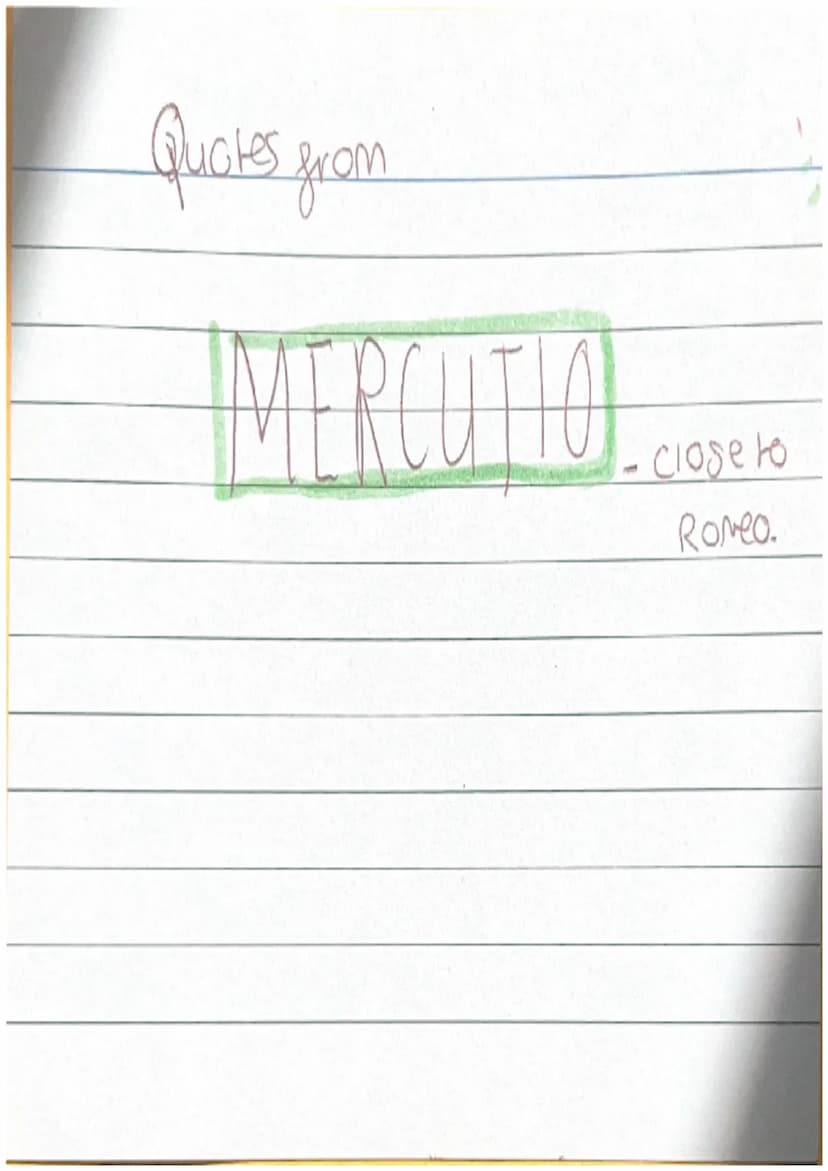 Quotes from
MERCUTIO
- close to
Romeo.